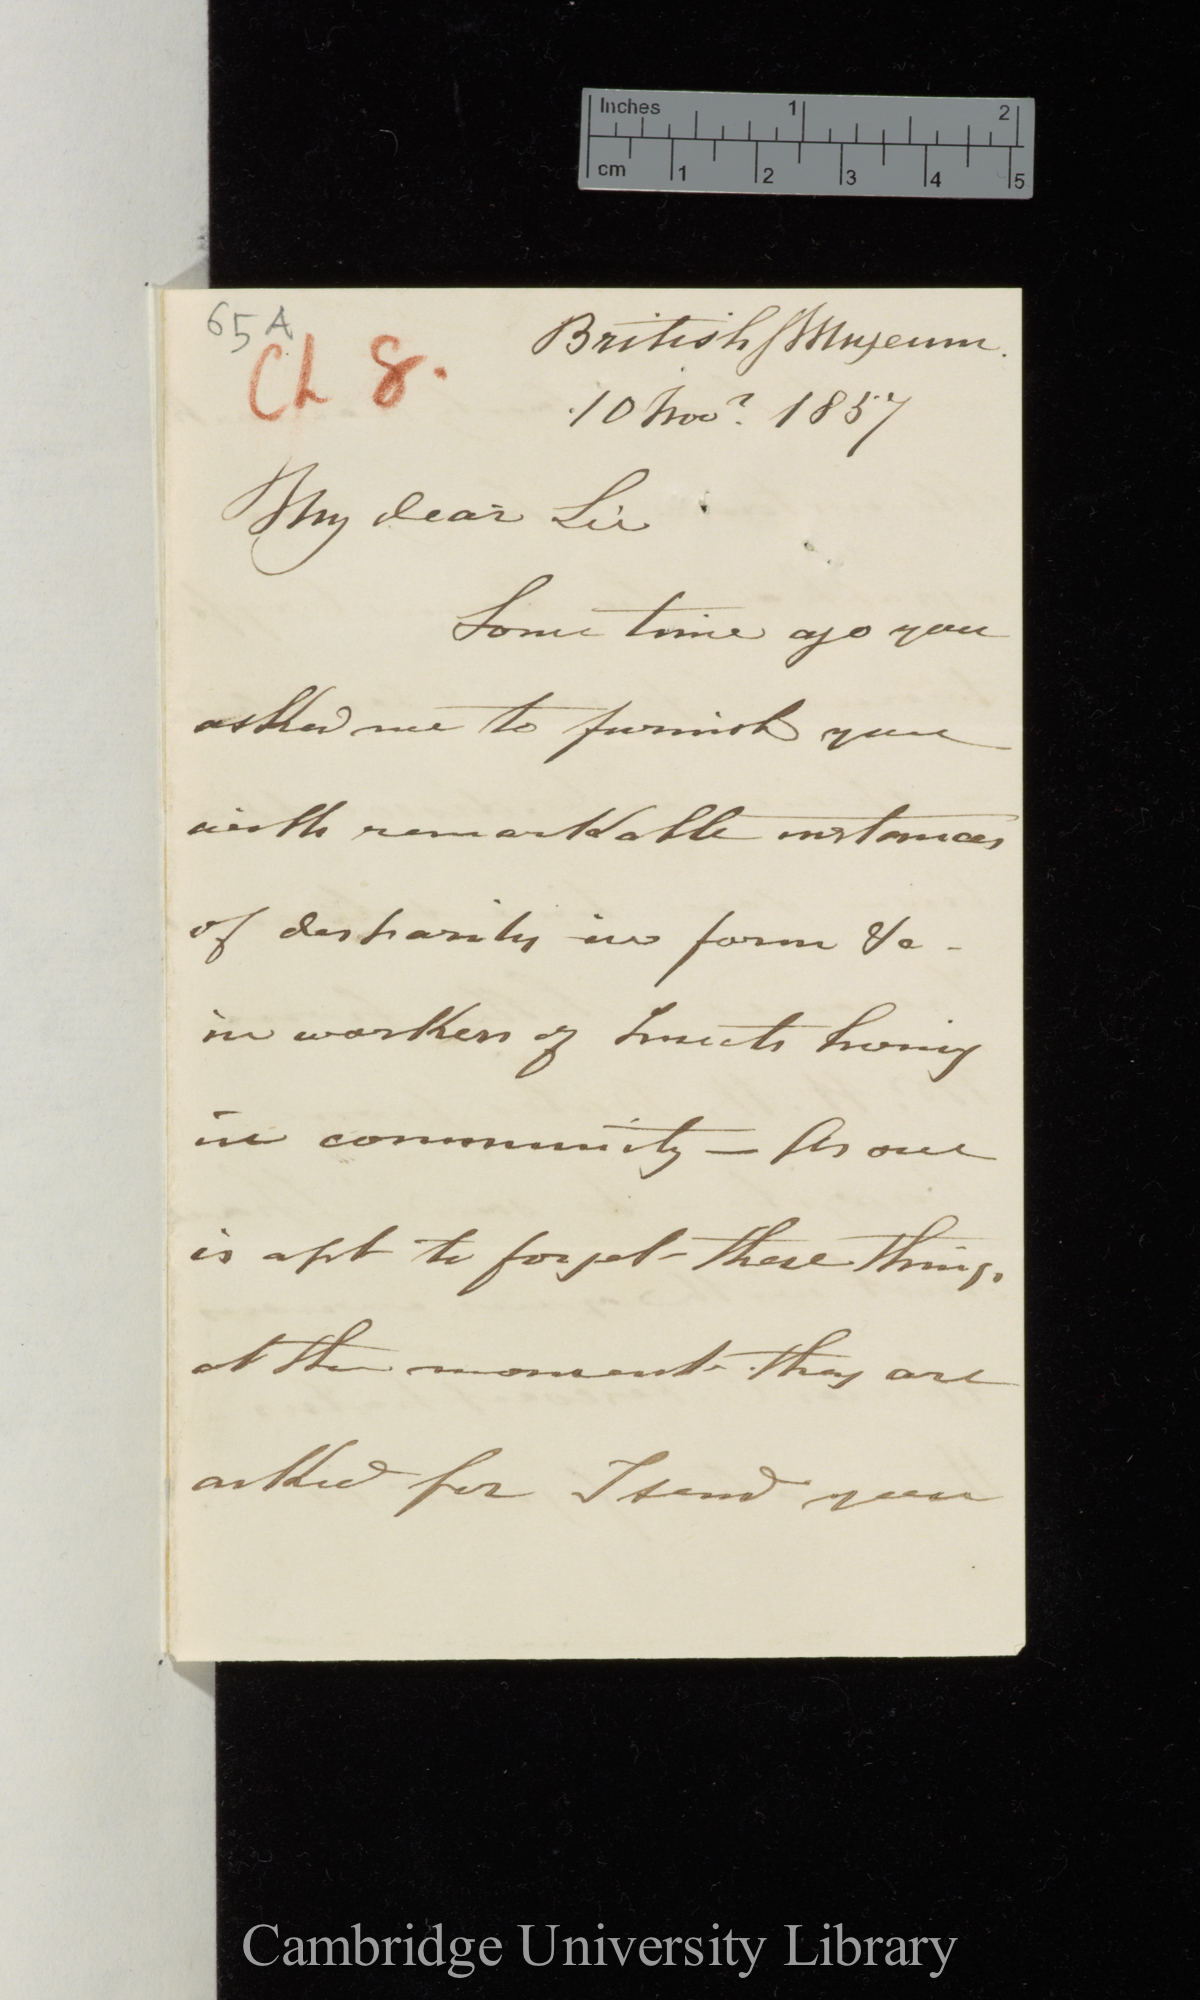 Inches 1 2
cm 1 2 3 4 5
65 A
Ch 8.
British Museum.
10 Novr. 1857
My dear Sir
Some time ago you
asked me to furnish you
with remarkable instances
of disparity in form &c -
in workers of Insects living
in community — As one
is apt to forget these things
at the moment they are
asked for I send you
Cambridge University Library